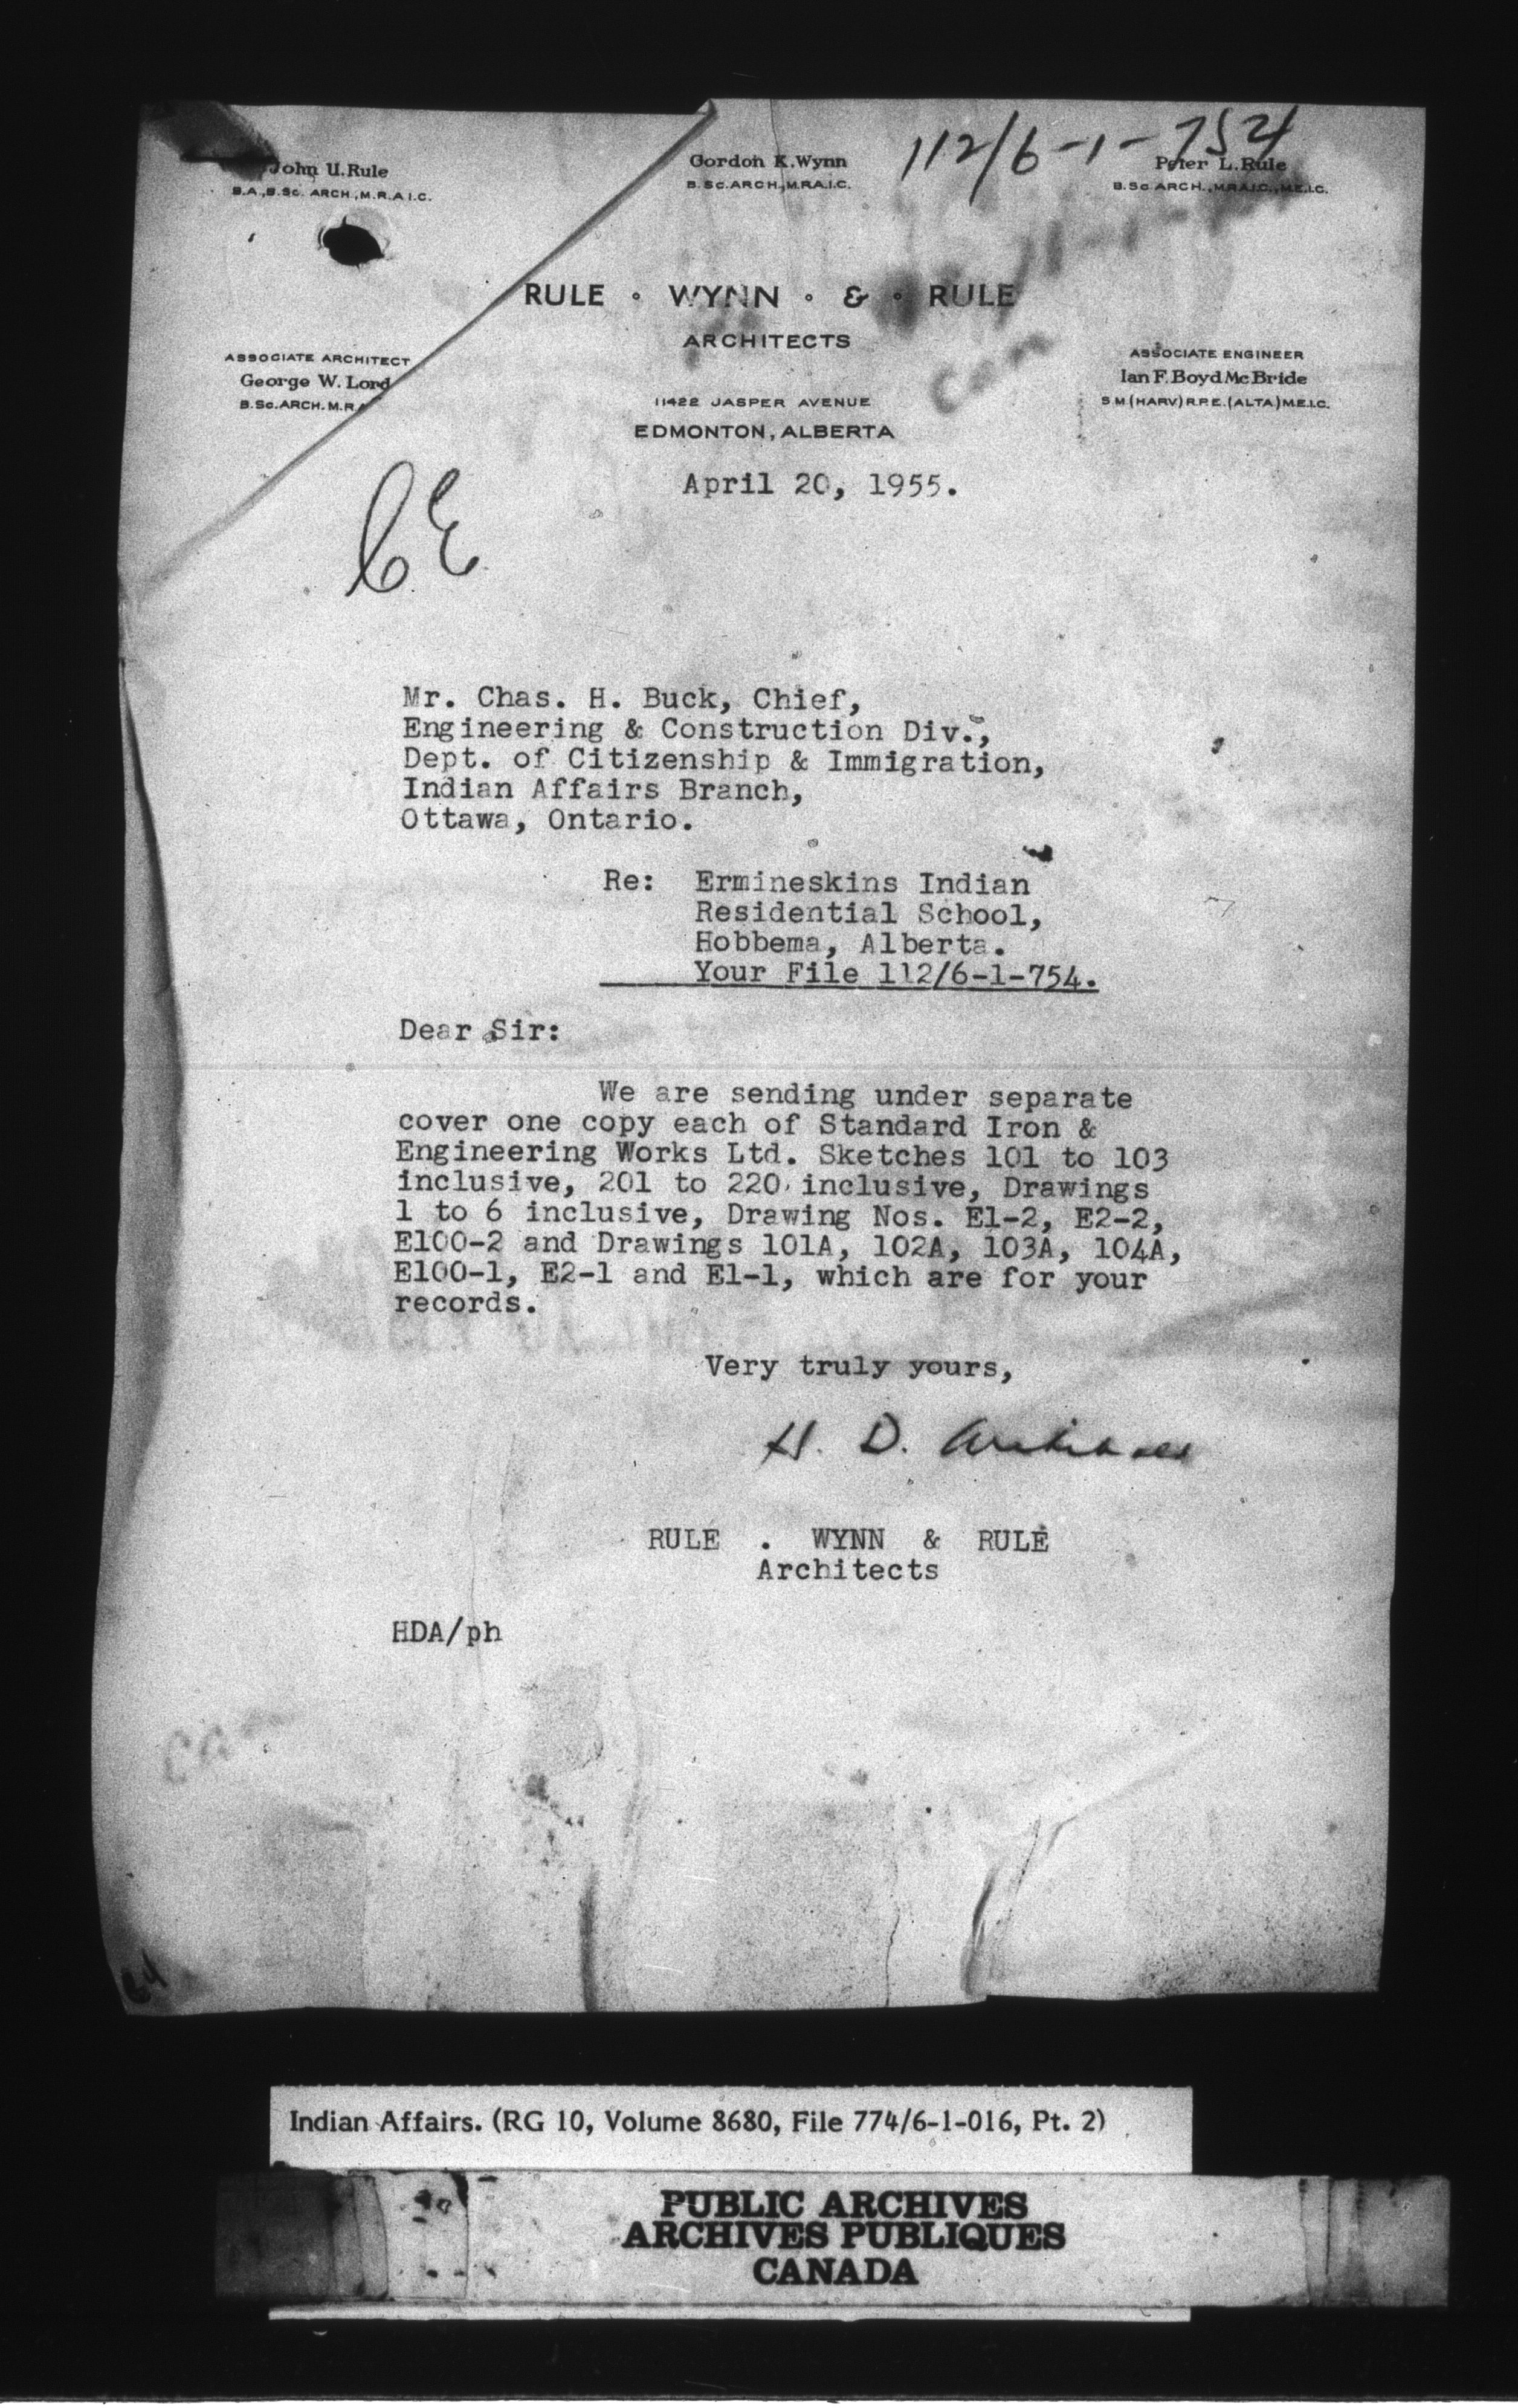 112/6-1-754
John U. Rule
B.A., B.Sc. ARCH., M.R.A.I.C.
Gordon K. Wynn
B.Sc. ARCH., M.R.A.I.C.
Peter L. Rule
B.Sc. ARCH., M.R.A.I.C., M.E.I.C.
RULE ∘ WYNN ∘ & ∘ RULE
ARCHITECTS
ASSOCIATE ARCHITECT
George W. Lord
B.Sc. ARCH. M.R.A
ASSOCIATE ENGINEER
Ian F. Boyd McBride
S.M (HARV) R.P.E. (ALTA) M.E.I.C.
11422 JASPER AVENUE
EDMONTON, ALBERTA
April 20, 1955.
Mr. Chas. H. Buck, Chief,
Engineering & Construction Div.,
Dept. of Citizenship & Immigration,
Indian Affairs Branch,
Ottawa, Ontario.
Re: Ermineskins Indian
Residential School,
Hobbema, Alberta.
Your File 112/6-1-754.
Dear Sir:
We are sending under separate
cover one copy each of Standard Iron &
Engineering Works Ltd. Sketches 101 to 103
inclusive, 201 to 220 inclusive, Drawings
1 to 6 inclusive, Drawing Nos. E1-2, E2-2,
E100-2 and Drawings 101A, 102A, 103A, 104A,
E100-1, E2-1 and E1-1, which are for your
records.
Very truly yours,
H. D.
RULE . WYNN & RULE
Architects
HDA/ph
Indian Affairs. (RG 10, Volume 8680, File 774/6-1-016, Pt. 2)
PUBLIC ARCHIVES
ARCHIVES PUBLIQUES
CANADA